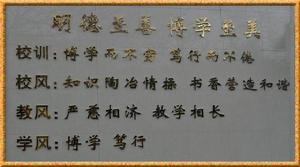 明德至善 博学至美
校训：博学而不穷 笃行而不倦
校风：知识陶冶情操 书香营造和谐
教风：严慈相济 教学相长
学风：博学 笃行